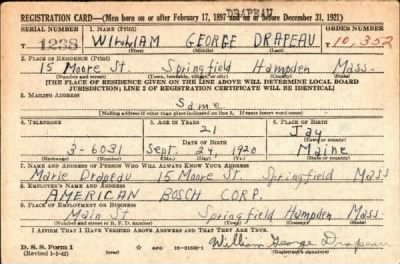 DRAPEAU
REGISTRATION CARD—(Men born on or after February 17, 1897 and on or before December 31, 1921)
SERIAL NUMBER 1. NAME (Print) ORDER NUMBER
T 1238 WILLIAM GEORGE DRAPEAU T 10,352
(First) (Middle) (Last)
2. PLACE OF RESIDENCE (Print)
15 Moore St. Springfield Hampden Mass.
(Number and street) (Town, township, village, or city) (County) (State)
[THE PLACE OF RESIDENCE GIVEN ON THE LINE ABOVE WILL DETERMINE LOCAL BOARD
JURISDICTION; LINE 2 OF REGISTRATION CERTIFICATE WILL BE IDENTICAL]
3. MAILING ADDRESS
Same
[Mailing address if other than place indicated on line 2. If same insert word same]
4. TELEPHONE 5. AGE IN YEARS 6. PLACE OF BIRTH
21 Jay
DATE OF BIRTH (Town or county)
3-6031 Sept. 24, 1920 Maine
(Exchange) (Number) (Mo.) (Day) (Yr.) (State or country)
7. NAME AND ADDRESS OF PERSON WHO WILL ALWAYS KNOW YOUR ADDRESS
Marie Drapeau 15 Moore St. Springfield Mass
8. EMPLOYER'S NAME AND ADDRESS
AMERICAN BOSCH CORP.
9. PLACE OF EMPLOYMENT OR BUSINESS
Main St Springfield Hampden Mass.
(Number and street or R. F. D. number) (Town) (County) (State)
I AFFIRM THAT I HAVE VERIFIED ABOVE ANSWERS AND THAT THEY ARE TRUE.
D. S. S. Form 1 GPO William George Drapeau
(Revised 1-5-42) (Registrant's signature)